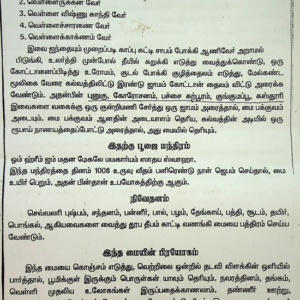 2. வெள்ளைருக்கன் வேர்
3. வெள்ளை விஷ்ணு காந்தி வேர்
4. வெள்ளைச்சாரணை வேர்
5. வெள்ளைக்காக்கணம் வேர்
இவை ஐந்தையும் முறைப்படி காப்பு கட்டி சாபம் போக்கி ஆணிவேர் அறாமல்
பிடுங்கி, உலர்த்தி முன்போல் தீயில் கருக்கி எடுத்து வைத்துக்கொண்டு, ஒரு
கோட்டானைப்பிடித்து உரோமம், குடல் போக்கி குழித்தைலம் எடுத்து, மேல்கண்ட
மூலிகை வேரை கல்வத்திலிட்டு இரண்டு ஜாமம் கோட்டான் தைலம் விட்டு அரைக்க
வேண்டும். அதன்பின் புனுகு, கோரோசனம், பச்சை கற்பூரம், குங்குமப்பூ, கஸ்தூரி
இவைகளை வகைக்கு ஒரு குன்றிமணி சேர்த்து ஒரு ஜாமம் அரைத்தால், மை பக்குவம்
அடையும். மை பக்குவம் ஆனதின் அடையாளம் எதெனில், கல்வத்தின் அடியில் ஒரு
ரூபாய் நாணயத்தைப்போட்டு அரைத்தால், அது மையில் தெரியும்.
இதற்கு பூஜை மந்திரம்
ஓம் ஹ்ரீம் ஐம் மதன மேகலே மயகாம்யம் ஸாதய ஸ்வாஹா.
இந்த மந்திரத்தை தினம் 1008 உருவு வீதம் பனிரெண்டு நாள் ஜெபம் செய்தால், மை
உயிர் பெறும். அதன் பின்தான் உபயோகத்திற்கு ஆகும்.
நிவேதனம்
செவ்வலரி புஷ்பம், சந்தனம், பன்னீர், பால், பழம், தேங்காய், பத்தி, சூடம், தயிர்,
பொங்கல், ஆகியவைகளை வைத்து தூப தீபம் காட்டி வணங்கி மையை பத்திரம் செய்ய
வேண்டும்.
இந்த மையின் பிரயோகம்
இந்த மையை கொஞ்சம் எடுத்து, வெற்றிலை ஒன்றில் தடவி விளக்கின் ஒளியில்
பார்த்தால், பூமிக்குள் இருக்கும் பொருள்கள் யாவும் தெரியும். நவரத்தினம், தங்கம்,
வெள்ளி முதலிய உலோகங்கள் இருப்பதைக்காணலாம். தண்ணீர் ஊற்று,